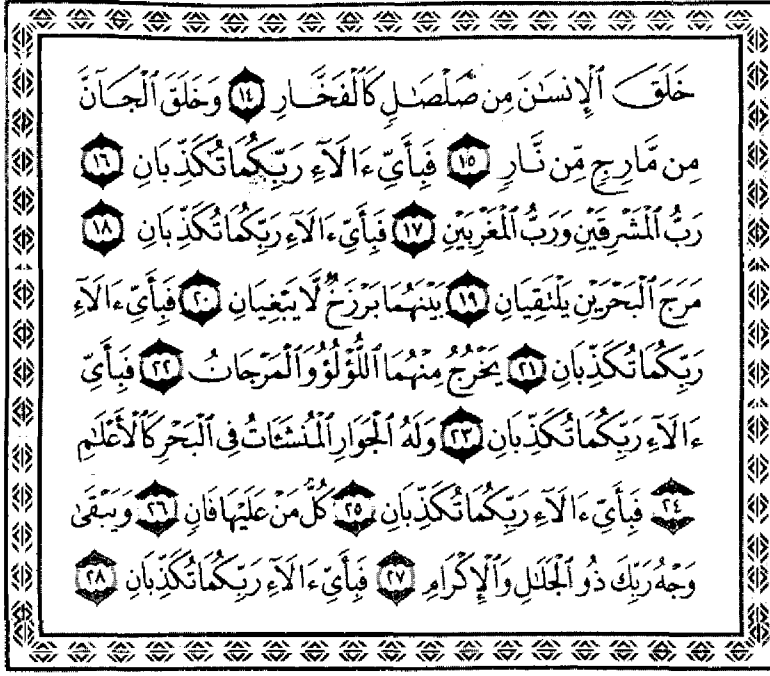 خَلَقَ ٱلْإِنسَـٰنَ مِن صَلْصَـٰلٍ كَٱلْفَخَّارِ ١٤ وَخَلَقَ ٱلْجَآنَّ
مِن مَّارِجٍ مِّن نَّارٍ ١٥ فَبِأَىِّ ءَالَآءِ رَبِّكُمَا تُكَذِّبَانِ ١٦
رَبُّ ٱلْمَشْرِقَيْنِ وَرَبُّ ٱلْمَغْرِبَيْنِ ١٧ فَبِأَىِّ ءَالَآءِ رَبِّكُمَا تُكَذِّبَانِ ١٨
مَرَجَ ٱلْبَحْرَيْنِ يَلْتَقِيَانِ ١٩ بَيْنَهُمَا بَرْزَخٌ لَّا يَبْغِيَانِ ٢٠ فَبِأَىِّ ءَالَآءِ
رَبِّكُمَا تُكَذِّبَانِ ٢١ يَخْرُجُ مِنْهُمَا ٱللُّؤْلُؤُ وَٱلْمَرْجَانُ ٢٢ فَبِأَىِّ
ءَالَآءِ رَبِّكُمَا تُكَذِّبَانِ ٢٣ وَلَهُ ٱلْجَوَارِ ٱلْمُنشَـَٔاتُ فِى ٱلْبَحْرِ كَٱلْأَعْلَـٰمِ
٢٤ فَبِأَىِّ ءَالَآءِ رَبِّكُمَا تُكَذِّبَانِ ٢٥ كُلُّ مَنْ عَلَيْهَا فَانٍ ٢٦ وَيَبْقَىٰ
وَجْهُ رَبِّكَ ذُو ٱلْجَلَـٰلِ وَٱلْإِكْرَامِ ٢٧ فَبِأَىِّ ءَالَآءِ رَبِّكُمَا تُكَذِّبَانِ ٢٨